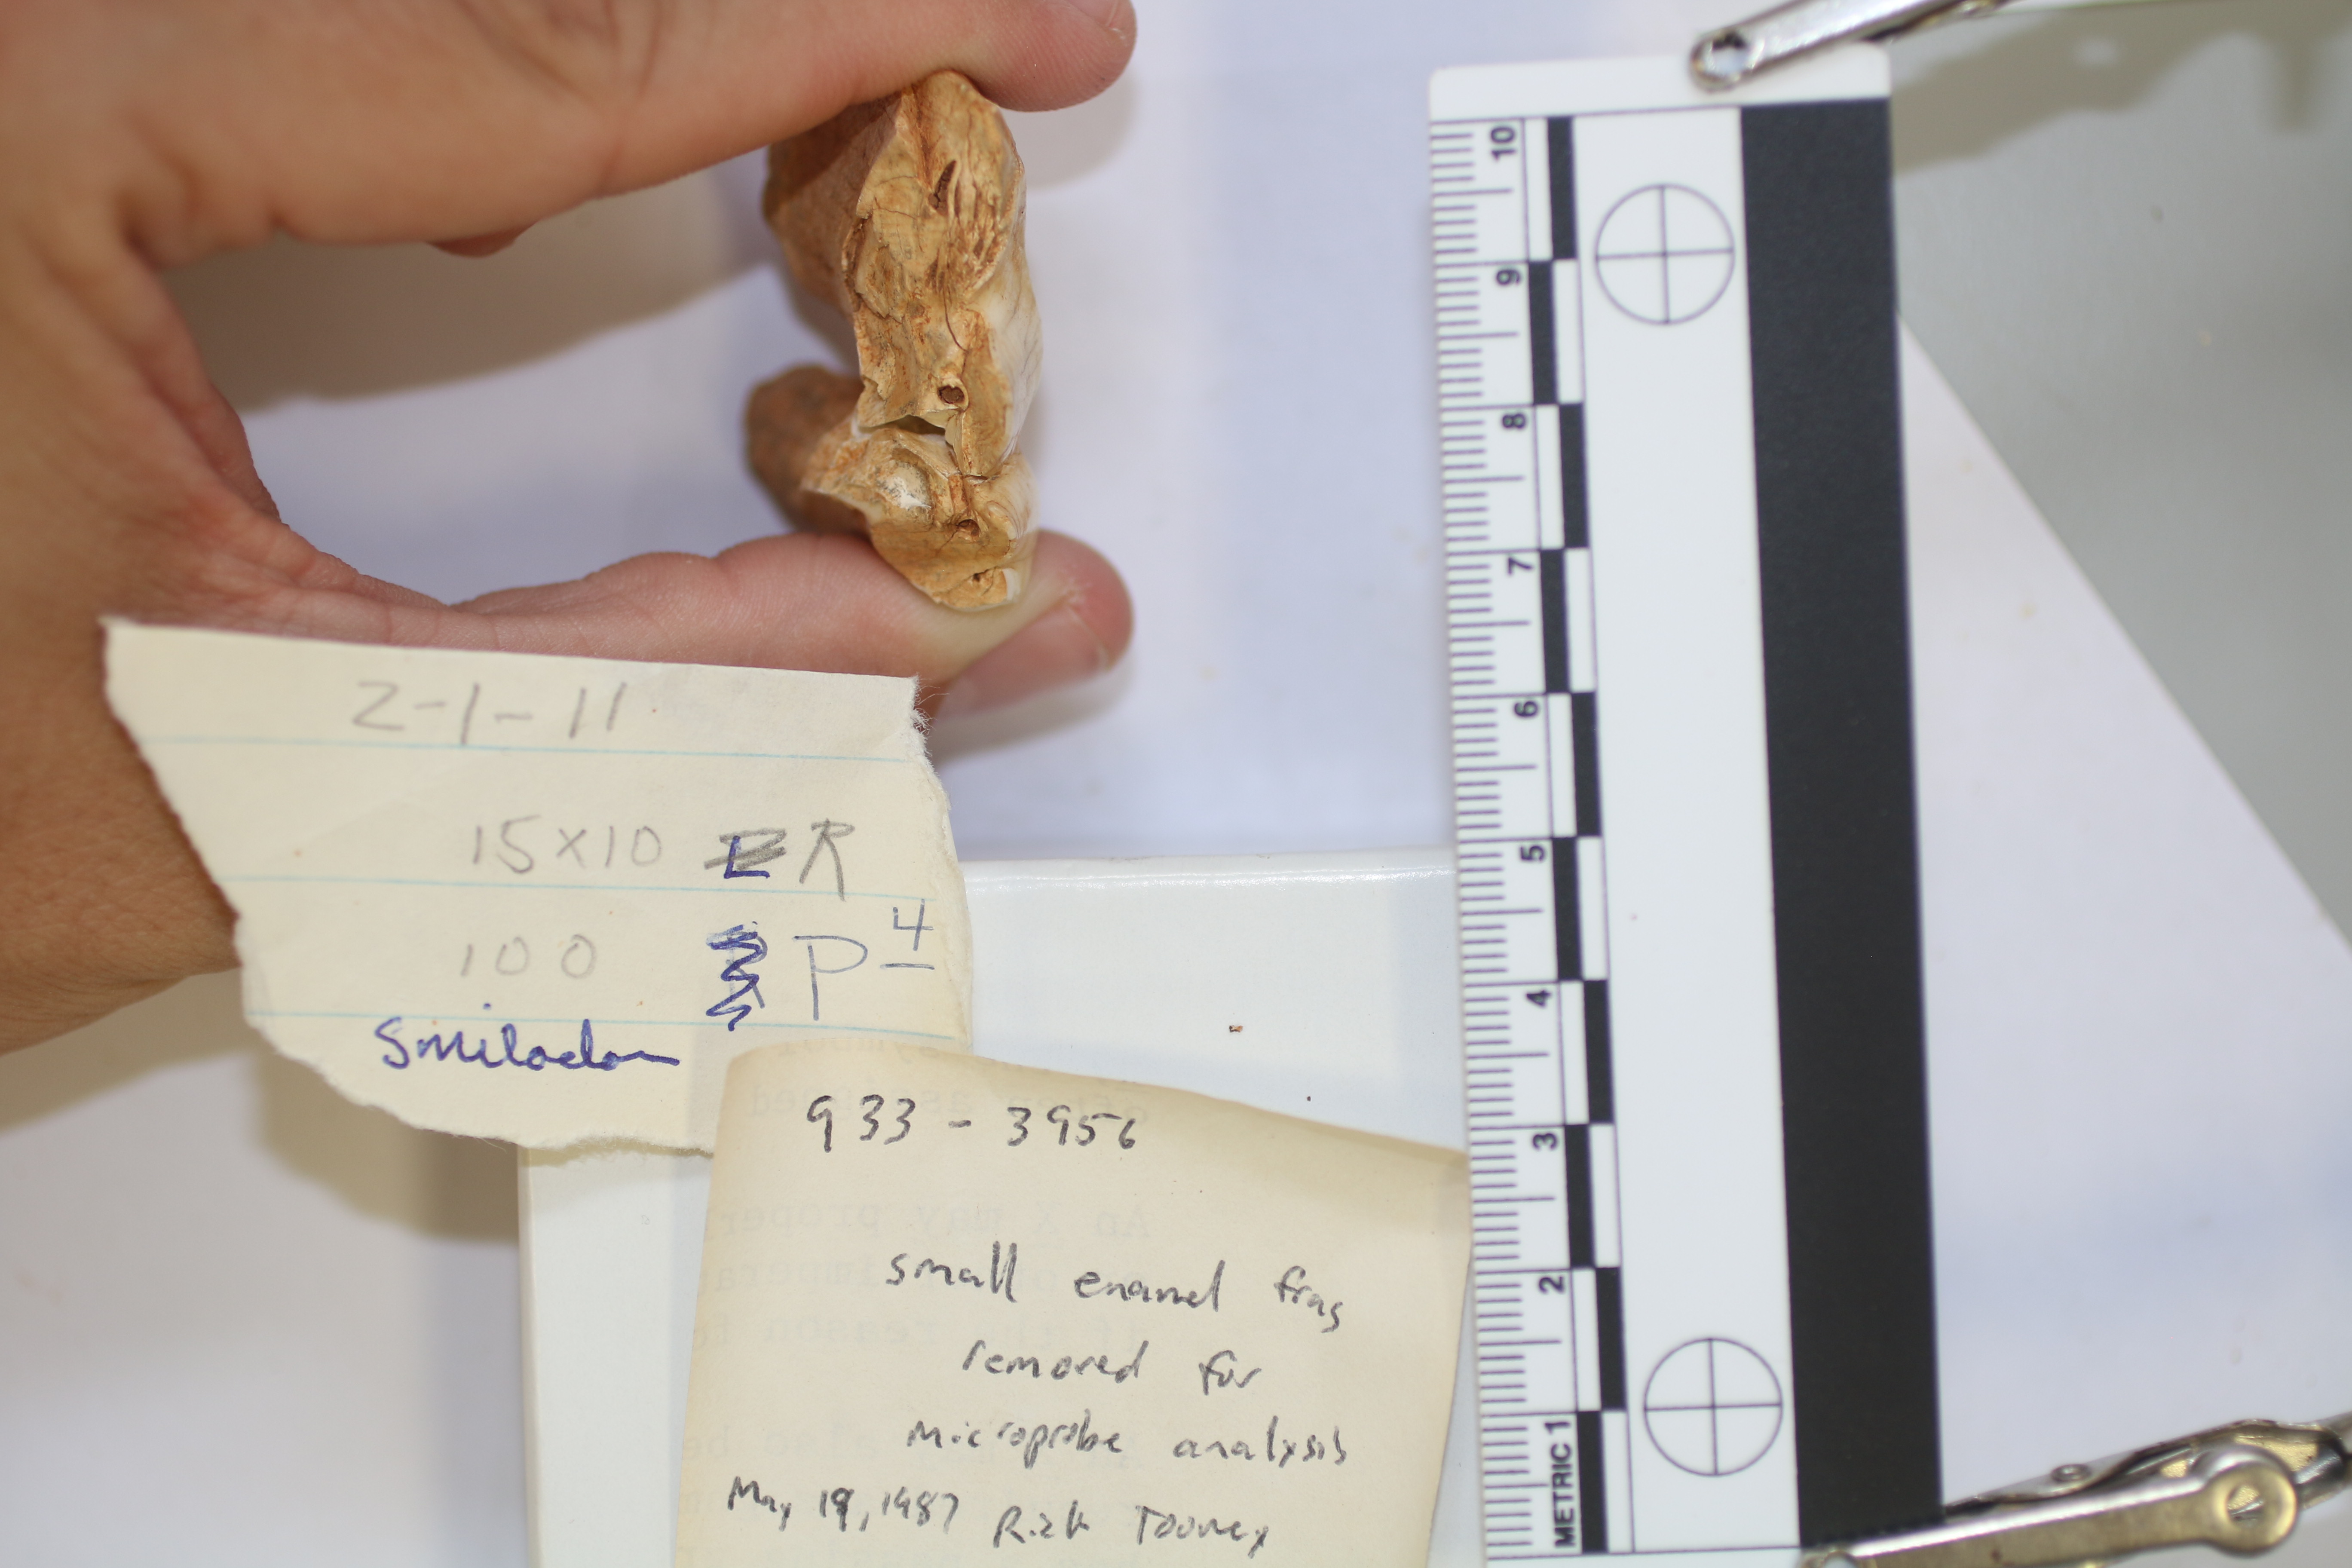 2-1-11
15x10 R
100 P4
Smilodon
933-3956
small enamel frag
removed for
microprobe analysis
May 19, 1987 Rick Toomey
METRIC 1 2 3 4 5 6 7 8 9 10